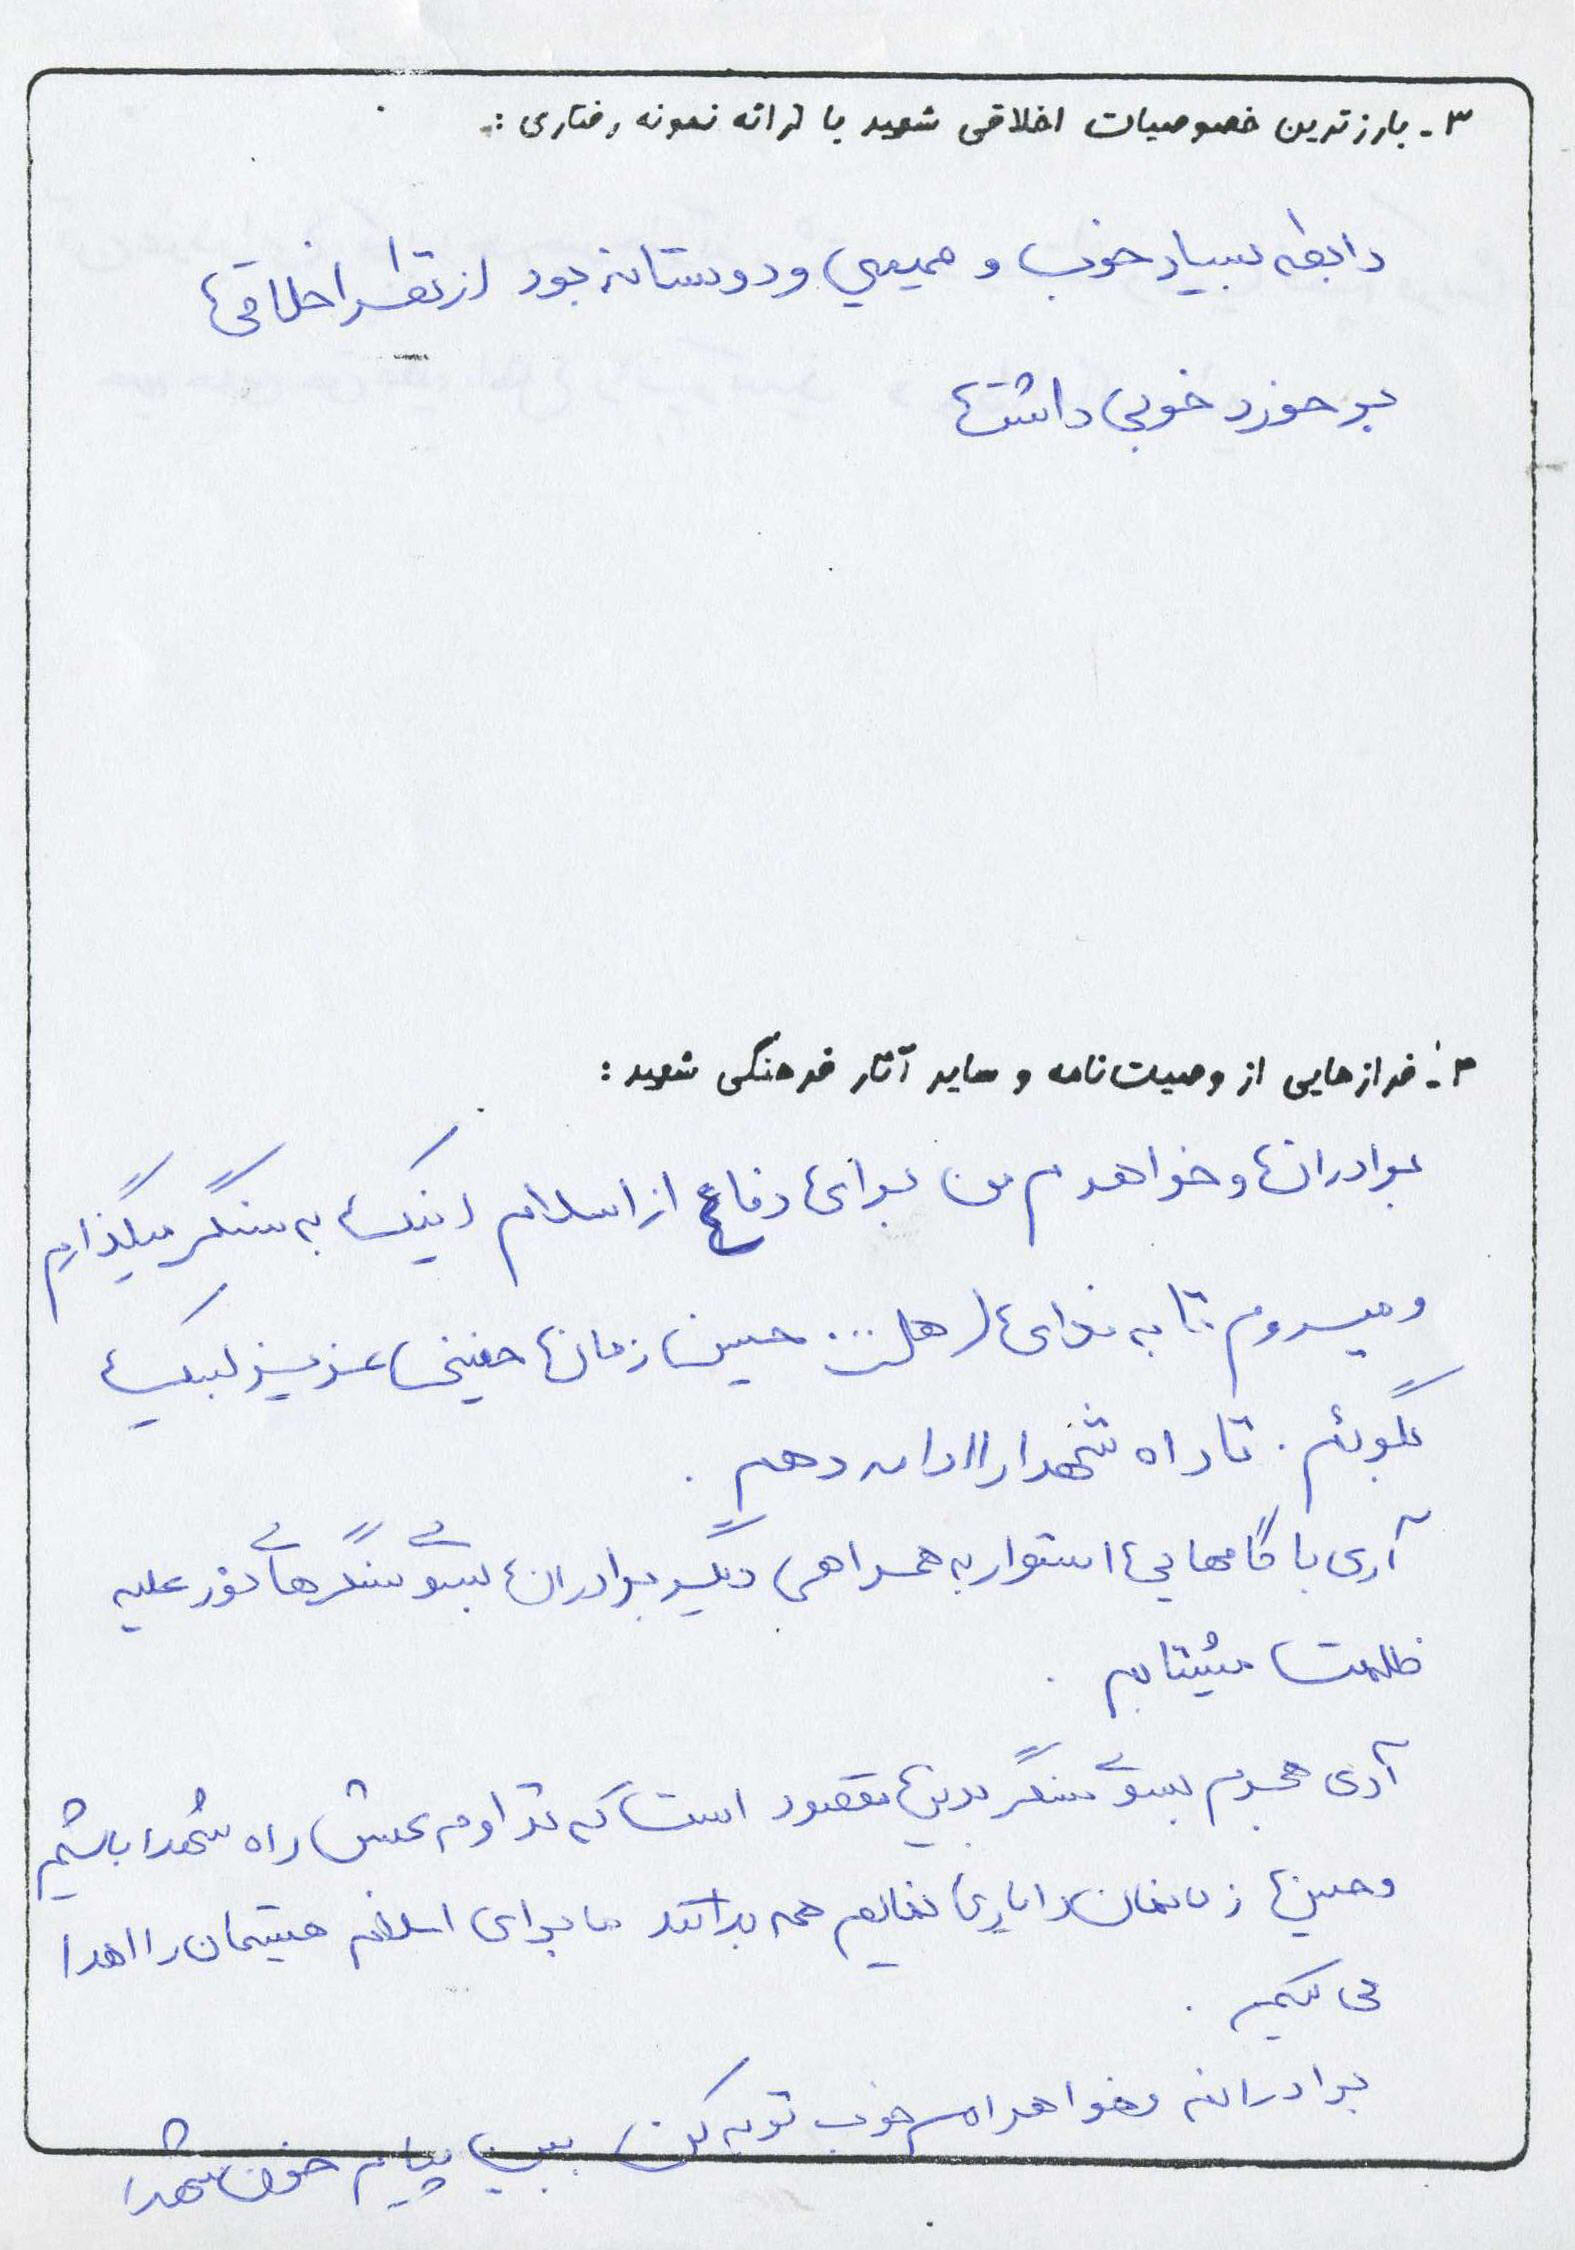 ۳- بارزترین خصوصیات اخلاقی شهید با ارائه نمونه رفتاری :
رابطه بسیار خوب و صمیمی و دوستانه بود از نظر اخلاقی
برخورد خوبی داشت
۴- فرازهایی از وصیت‌نامه و سایر آثار فرهنگی شهید :
برادران و خواهرم من برای دفاع از اسلام اینک به سنگر میگذارم
و میروم تا به ندای هل حسین زمان خمینی عزیز لبیک
بگویم . تا راه شهدا را ادامه دهم .
آری با گامهایی استوار به همراهی دیگر برادران بسوی سنگرهای نور علیه
ظلمت میشتابم .
آری هجرم بسوی سنگر بدین مقصود است که تداوم بخش راه شهدا باشیم
و حسین زمانمان را یاری نمائیم همه بدانند ما برای اسلام هستیمان را اهدا
می کنیم .
برادران و خواهرانم خوب توجه کن ببین پیام خون شهدا